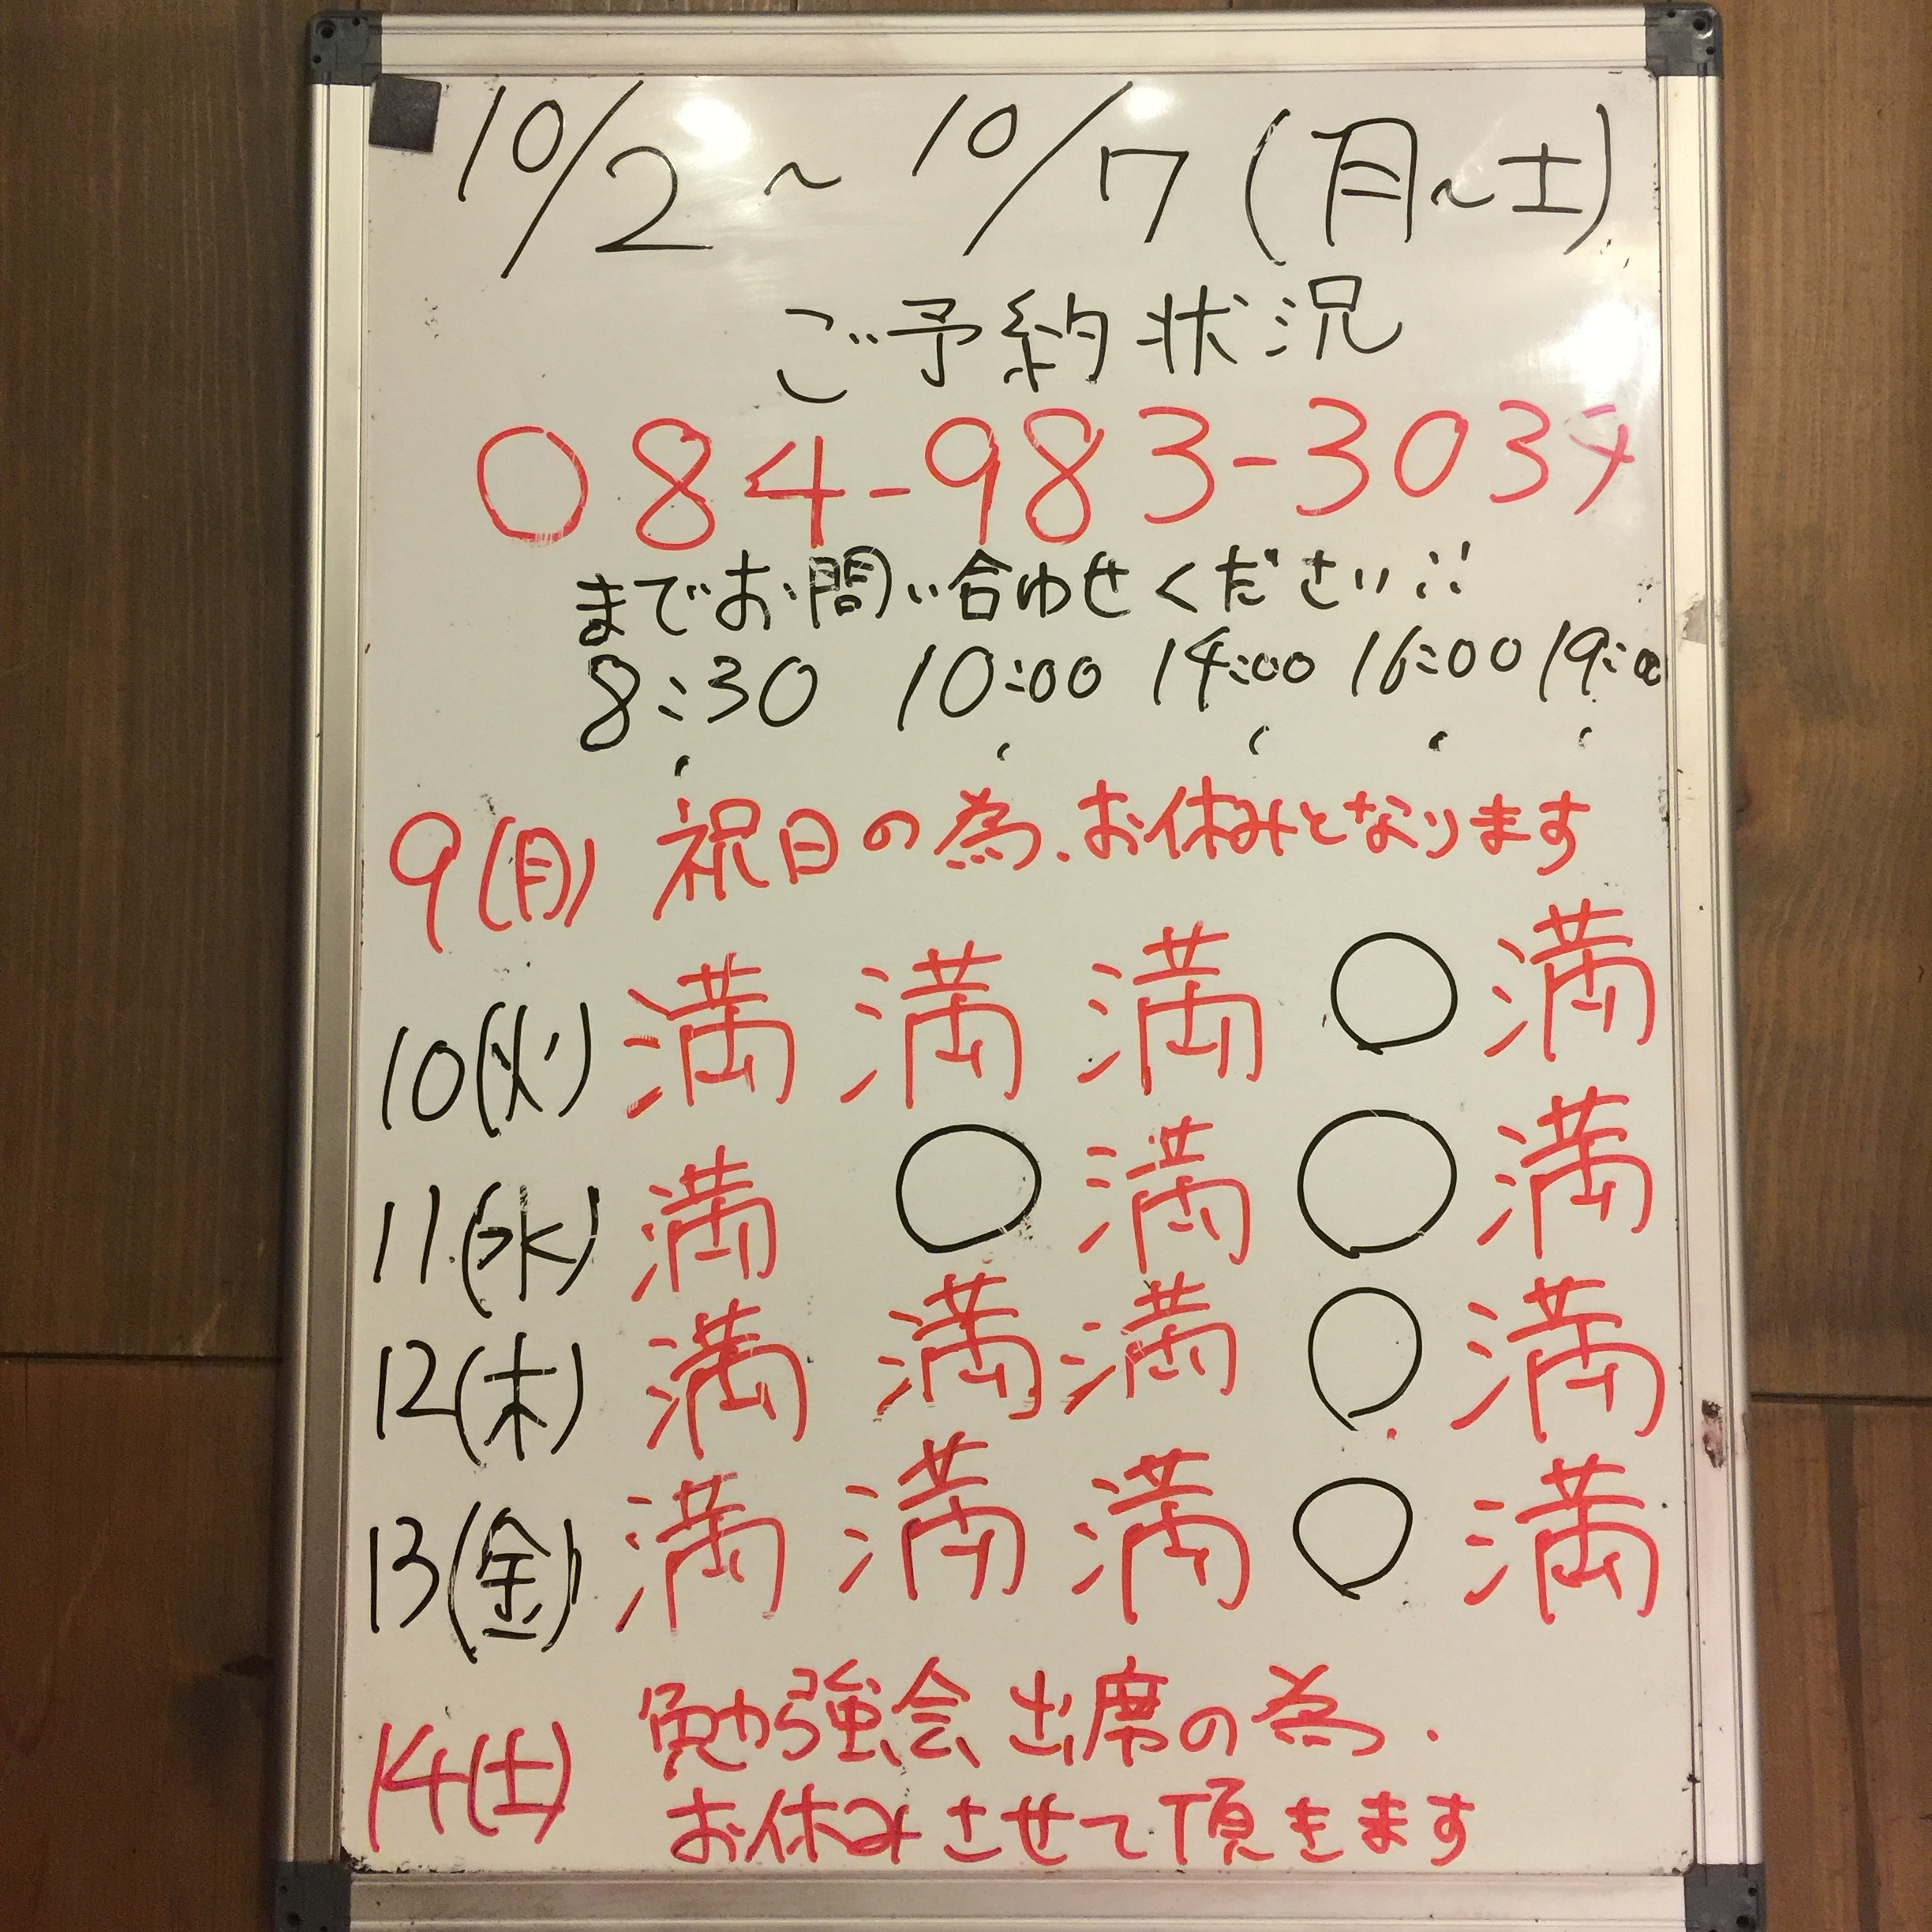 10/2～10/7(月～土)
ご予約状況
084-983-3034
までお問い合わせください!!
8:30 10:00 14:00 16:00 19:00
9(月) 祝日の為、お休みとなります
10(火) 満 満 満 ○ 満
11(水) 満 ○ 満 ○ 満
12(木) 満 満 満 ○ 満
13(金) 満 満 満 ○ 満
14(土) 勉強会出席の為、
お休みさせて頂きます